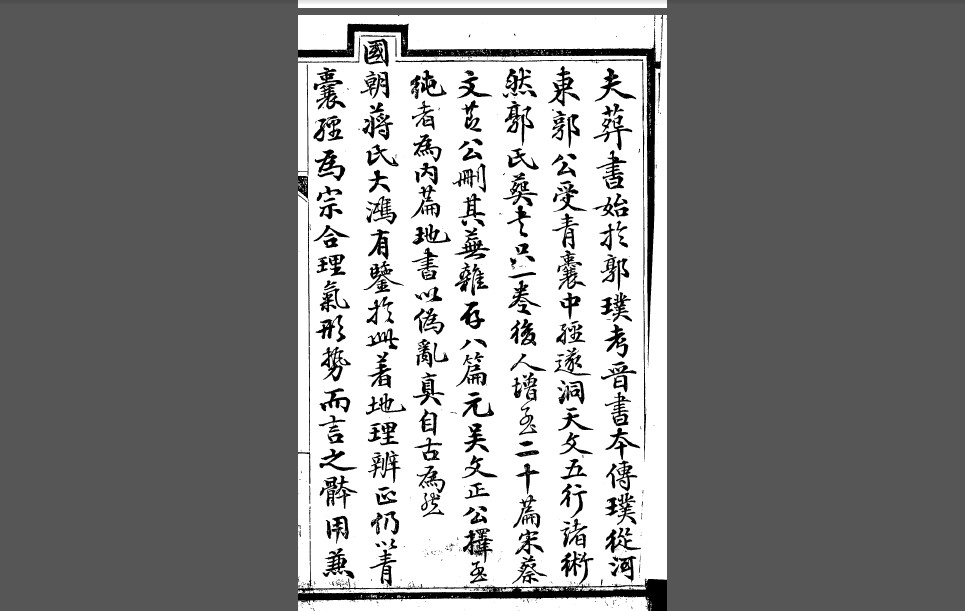 夫葬書始於郭璞考晉書本傳璞從河
東郭公受青囊中經遂洞天文五行諸術
然郭氏葬書只一卷後人增至二十篇宋蔡
文公刪其蕪雜存八篇元吴文正公擇至
純者為内篇地書以偽亂真自古為然
國朝蔣氏大鴻有鑒於此着地理辨正仍以青
囊經為宗合理氣形勢而言之體用兼